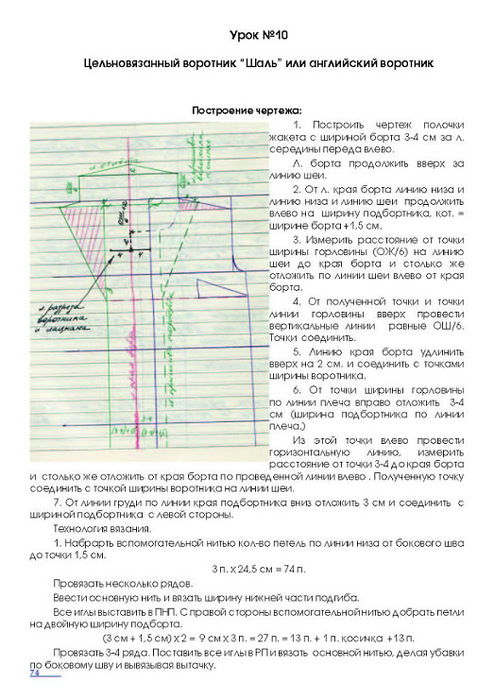 Урок №10
Цельновязанный воротник “Шаль” или английский воротник
Построение чертежа:
1. Построить чертеж полочки
жакета с шириной борта 3-4 см за л.
середины переда влево.
Л. борта продолжить вверх за
линию шеи.
2. От л. края борта линию низа и
линию низа и линию шеи продолжить
влево на ширину подбортника, кот. =
ширине борта +1,5 см.
3. Измерить расстояние от точки
ширины горловины (ОЖ/6) на линию
шеи до края борта и столько же
отложить по линии шеи влево от края
борта.
4. От полученной точки и точки
линии горловины вверх провести
вертикальные линии равные ОШ/6.
Точки соединить.
5. Линию края борта удлинить
вверх на 2 см. и соединить с точками
ширины воротника.
6. От точки ширины горловины
по линии плеча вправо отложить 3-4
см (ширина подбортника по линии
плеча.)
Из этой точки влево провести
горизонтальную линию, измерить
расстояние от точки 3-4 до края борта
и столько же отложить от края борта по проведенной линии влево . Полученную точку
соединить с точкой ширины воротника на линии шеи.
7. От линии груди по линии края подбортника вниз отложить 3 см и соединить с
шириной подбортника с левой стороны.
Технология вязания.
1. Набрарть вспомогательной нитью кол-во петель по линии низа от бокового шва
до точки 1,5 см.
3 п. х 24,5 см = 74 п.
Провязать несколько рядов.
Ввести основную нить и вязать ширину нижней части подгиба.
Все иглы выставить в ПНП. С правой стороны вспомогательной нитью добрать петли
на двойную ширину подборта.
(3 см + 1,5 см) х 2 = 9 см х 3 п. = 27 п. = 13 п. + 1 п. косичка +13 п.
Провязать 3-4 ряда. Поставить все иглы в РП и вязать основной нитью, делая убавки
по боковому шву и вывязывая вытачку.
л разреза
воротника
и лацкана
74